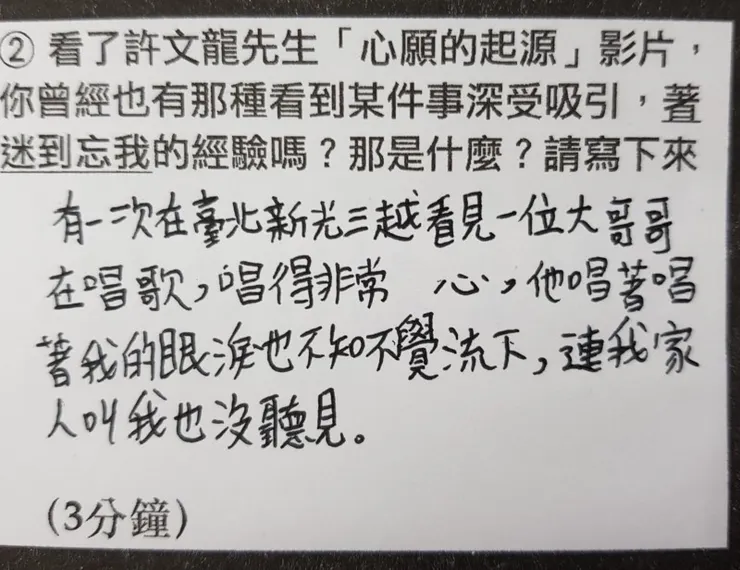 ② 看了許文龍先生「心願的起源」影片，
你曾經也有那種看到某件事深受吸引，著
迷到忘我的經驗嗎？那是什麼？請寫下來
有一次在臺北新光三越看見一位大哥哥
在唱歌，唱得非常 心，他唱著唱
著我的眼淚也不知不覺流下，連我家
人叫我也沒聽見。
(3分鐘)